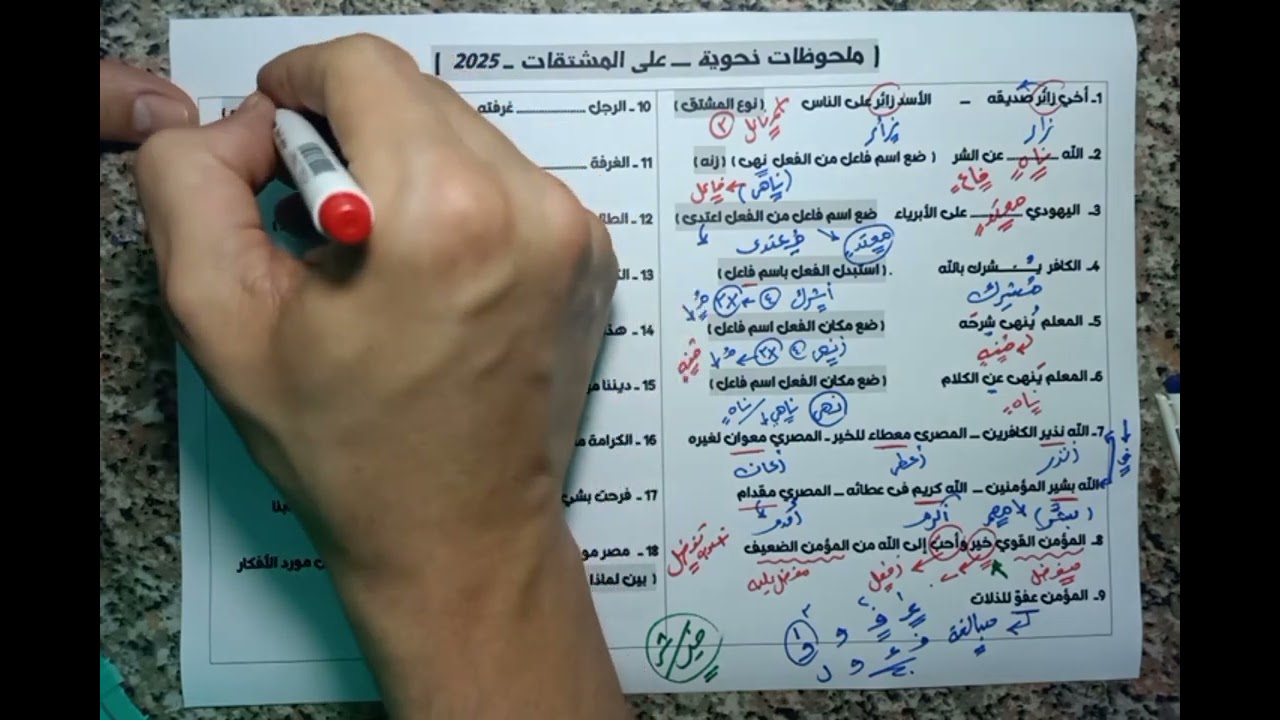 [ ملحوظات نحوية ــ على المشتقات ـ 2025 ]
1ـ أخي زائر صديقه ـ الأسد زائر على الناس ( نوع المشتق )
زار يزأر
2ـ الله ناهٍ عن الشر ( ضع اسم فاعل من الفعل نهى ) ( زنه )
(ناهى) فاعل فاعٍ
3ـ اليهودي معتدٍ على الأبرياء ضع اسم فاعل من الفعل اعتدى )
معتدٍ يعتدى
4ـ الكافر يُشرك بالله . ( استبدل الفعل باسم فاعل )
مُشرك أشرك
5ـ المعلم يُنهى شرحَه ( ضع مكان الفعل اسم فاعل )
مُنهٍ
6ـ المعلم يَنهى عن الكلام ( ضع مكان الفعل اسم فاعل )
ناهٍ نهى ناهى / ناهٍ
7ـ الله نذير الكافرين ــ المصري معطاء للخير ـ المصري معوان لغيره
أنذر أعطى أعان
الله بشير المؤمنين ــ الله كريم فى عطائه ــ المصري مقدام
أكرم أقدم
8ـ المؤمن القوي خير وأحب إلى الله من المؤمن الضعيف
مفضل أفعل مفضل عليه
9ـ المؤمن عفوّ للذلات
مبالغة ف ع و ل
خير / شر
10 ـ الرجل غرفته
11 ـ الغرفة
12 ـ
13 ـ
14 ـ
15 ـ ديننا
16 ـ الكرامة
17 ـ فرحت
18 ـ مصر مورد الأفكار
( بين لماذا